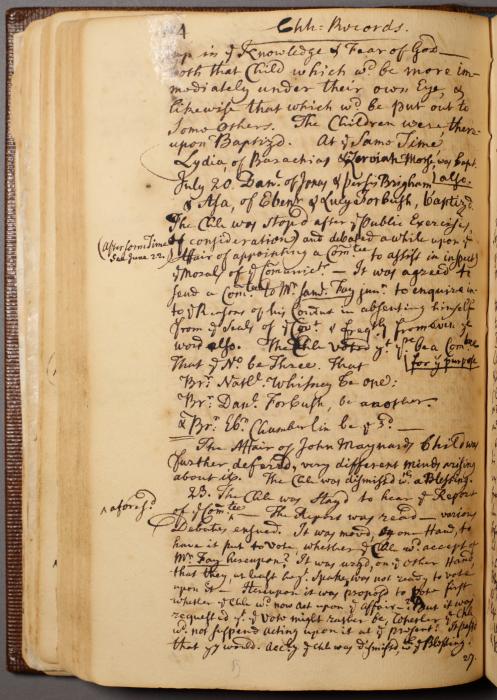 4 Chh: Records.
up in ye Knowledge & Fear of God —
both that Child which wd be more im-
mediately under their own Eye, &
likewise that which wd be put out to
Some others. The Children were there-
upon Baptiz'd. At ye Same Time
Lydia, of Barachias & Zerviah Morse was bapt. also.
July 20. Danl. of Jonas & Persis Brigham
& Asa, of Ebenr & Lucy Forbush, baptiz'd.
The Chh was Stop'd after ye Public Exercises,
(After some Time
See June 22.)
of consideration) and debated a while upon ye
Affair of appointing a Comtee to assist in inspectg
ye Morals of ye Comunicts. — It was agreed to
send a Comtee to Mr Saml. Fay junr. to enquire in-
to ye Reasons of his Conduct in absenting himself
from ye Seals of ye Covt. & freqtly from ye
word also. The Chh voted yt yre be a Comtee
for ye purpose
That ye No. be Three. That
Br: Nathl. Whitney be one:
Br: Danl. Forbush, be another.
& Br: Ebr. Chamberlin be ye 3d. —
The Affair of John Maynards Child was
further deferred, very different minds arising
about it. The Chh was dismiss'd wth a Blessing.
23. The Chh was Stay'd to hear ye Report
^ aforesd.
of ye Comtee ^ — The Report was read — various
Debates ensued. It was mov'd, on one Hand, to
have it put to Vote, whether ye Chh wd. accept of
Mr Fay hereupon? It was urg'd, on ye other Hand,
that they, at least he yt Spake, was not ready to vote
upon it — Hereupon it was propos'd to Vote first
whether ye Chh wd now act upon ye Affair? But it was
requested yt ye Vote might rather be, whether ye Chh
wd. not suspend acting upon it at ye present? It pass'd
that yy would. Accly ye Chh was dismiss'd, wth ye Blessing.
27.